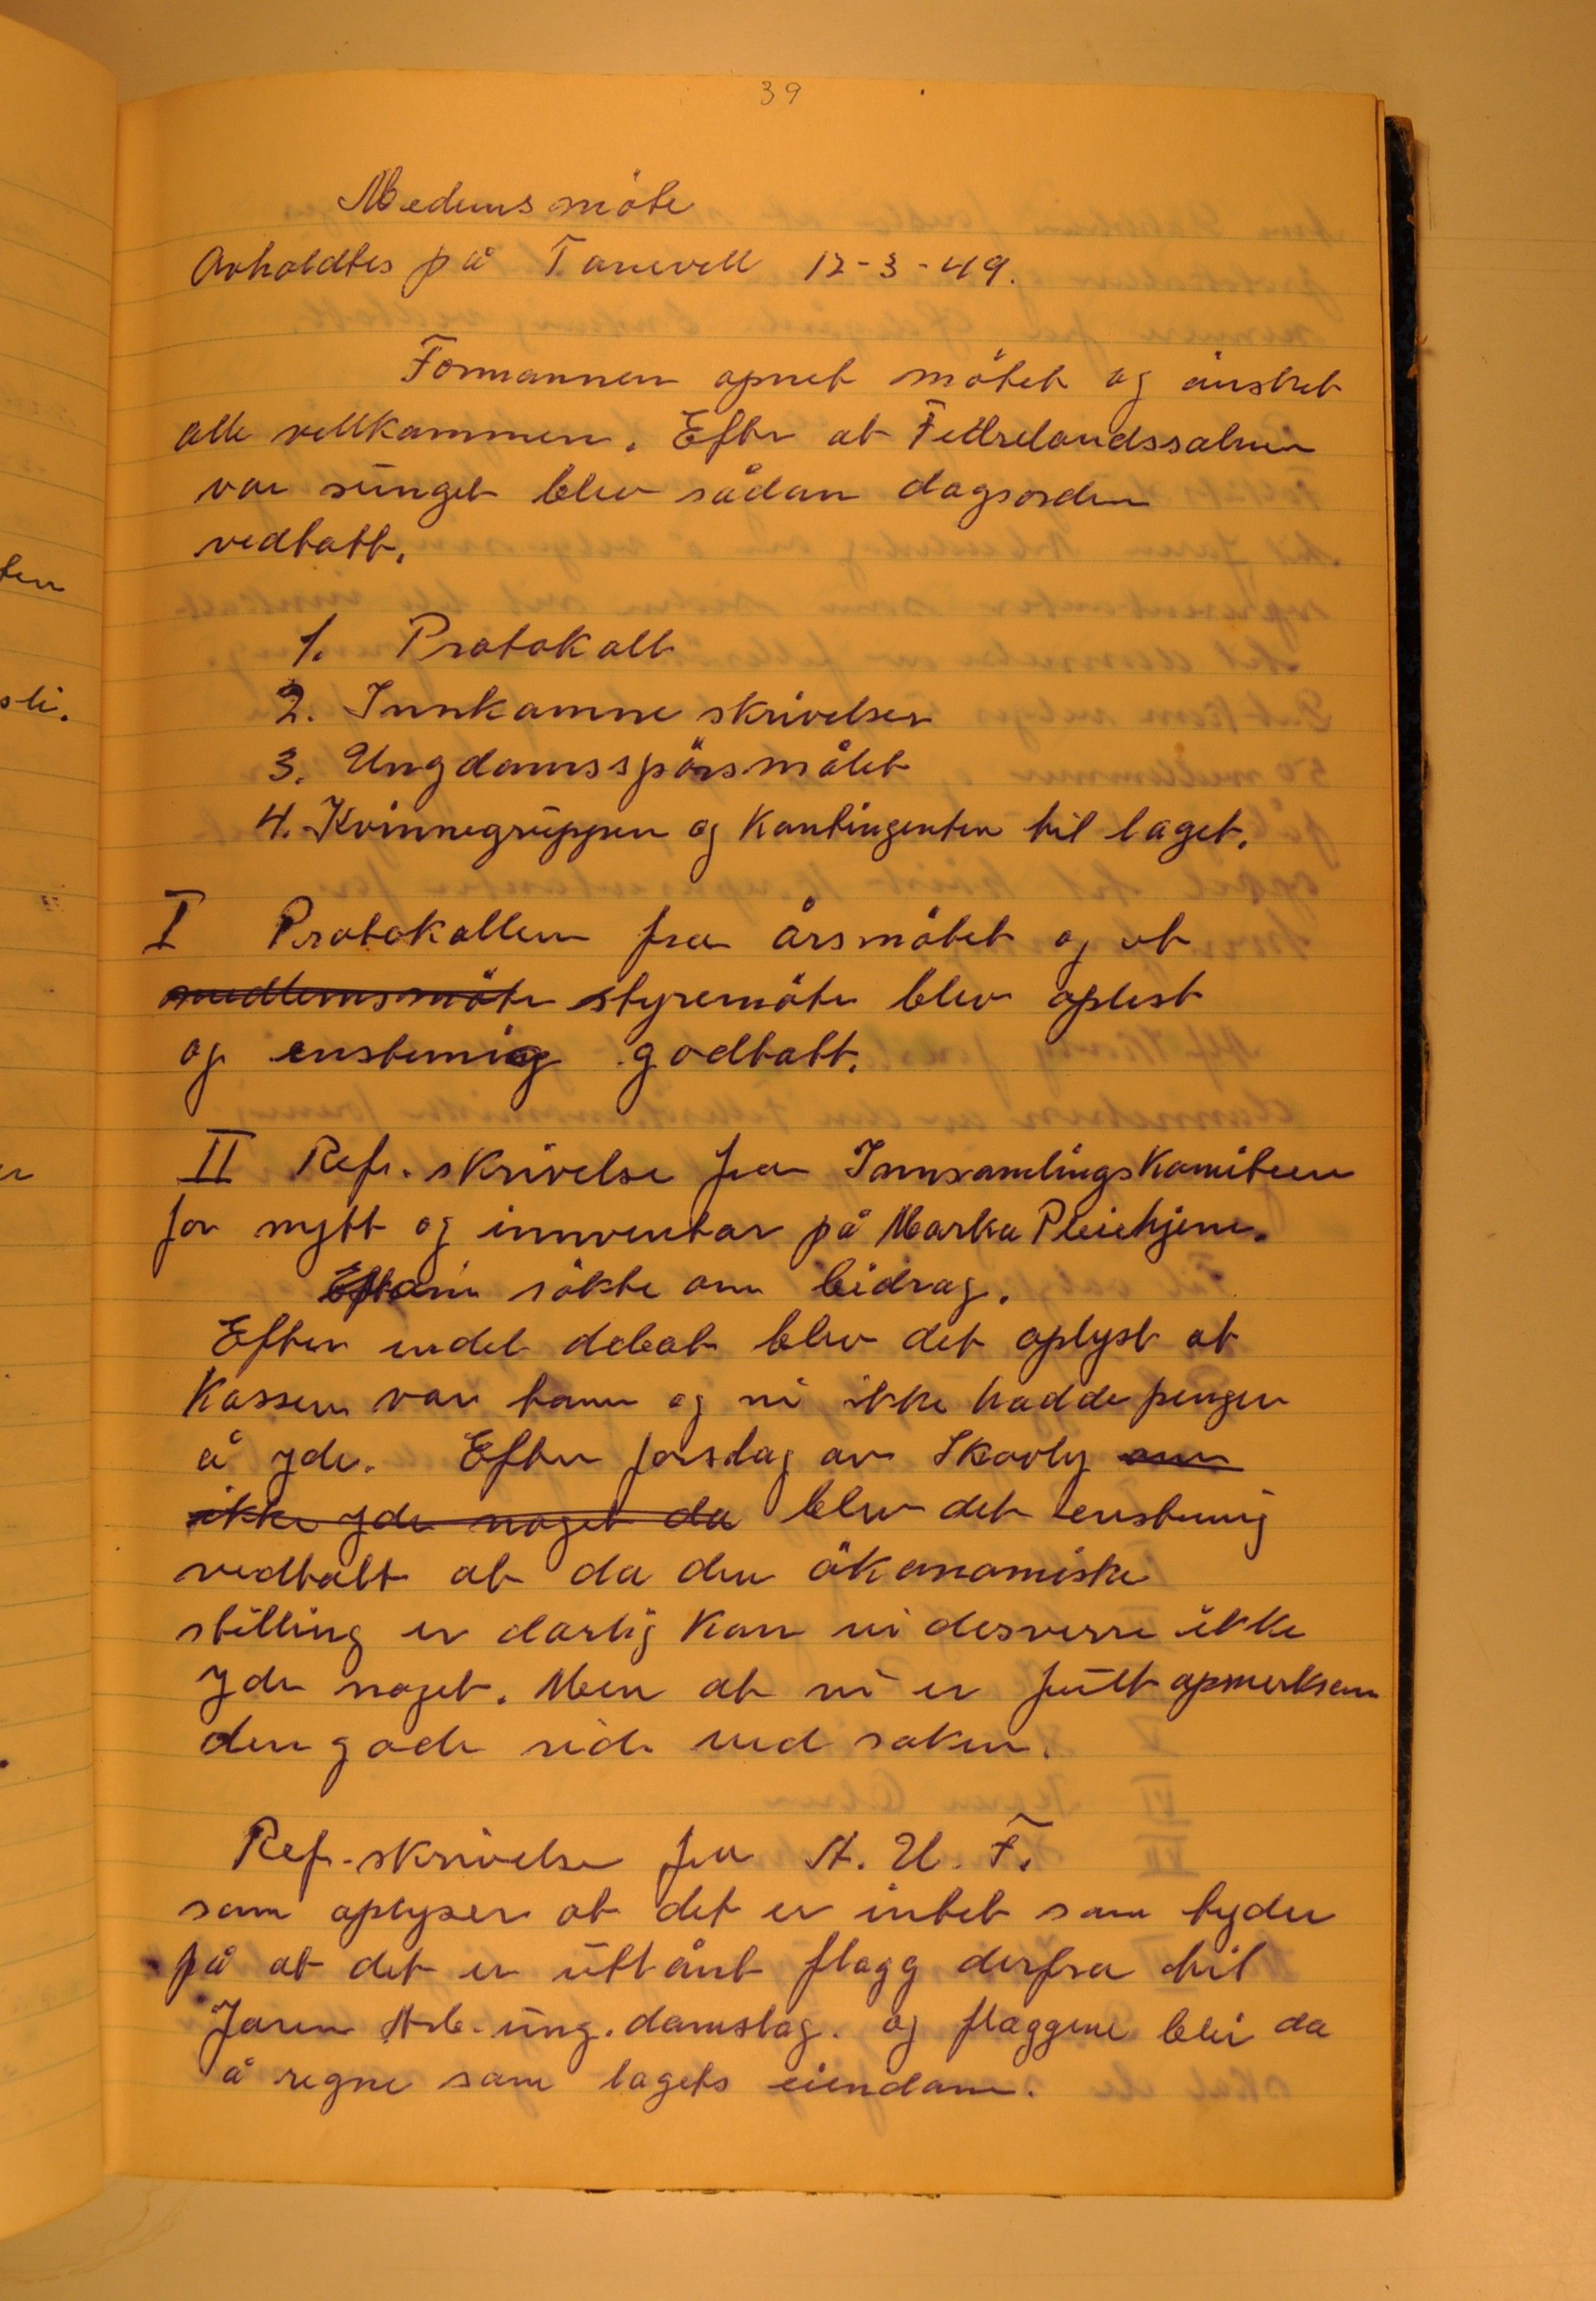 39
Medemsmöte
Avholdtes på Tanevell 12-3-49.
Formannen opnet mötet og önsket
alle vellkommen. Efter at Fedrelandssalmen
var sunget blev sådan dagsorden
vedtatt.
1. Protokoll
2. Innkomne skrivelser
3. Ungdomsspörsmålet
4. Kvinnegruppen og Kontingenten til laget.
I Protokollen fra årsmötet og et
medlemsmöte styremöte blev oplest
og enstemig godtatt.
II Ref. skrivelse fra Innsamlingskomiteen
for nytt og innventar på Marka Pleiehjem.
som sökte om bidrag.
Efter endel debat blev det oplyst at
Kassen var tom og vi ikke hadde penger
å yde. Efter forslag av Skovly om
ikke yde noget da blev det enstemig
vedtatt at da den ökonomiske
stilling er darlig kan vi desverre ikke
yde noget. Men at vi er fullt opmerksom
den gode side ved saken.
Ref. skrivelse fra A. U. F.
som oplyser at det er intet som tyder
på at det er utlånt flagg derfra til
Jaren Arb. ung. domslag. og flaggene blir da
å regne som lagets eiendom.
ten
sli.